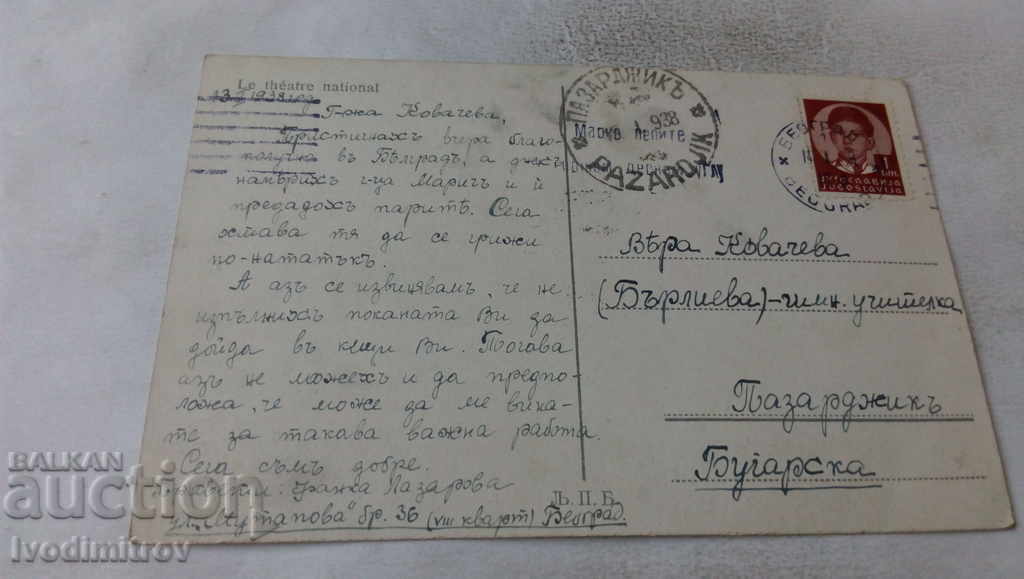 Le théatre national
13.I.1938 год
Г-жа Ковачева,
Пристигнахъ вчера благо-
получно въ Бѣлградъ, а днесъ
намѣрихъ г-ца Марич и ѝ
предадохъ паритѣ. Сега
остава тя да се грижи
по-нататъкъ.
А азъ се извинявамъ, че не
изпълнихъ поканата Ви да
дойда въ кѫщи Ви. Тогава
азъ не можехъ и да предпо-
ложа, че може да ме вика-
те за такава важна работа.
Сега съмъ добре.
Ранка Лазарова
ул. бр. 36 (VIII кварт) Београд.
Љ.П.Б.
ПАЗАРДЖИКЪ
1938
PAZARDJIK
Марко
BEOGRAD
1 DIN.
ЈУГОСЛАВИЈА
JUGOSLAVIJA
Вѣра Ковачева
(Бърлиева) – гимн. учителка
Пазарджикъ
Бугарска
BALKAN
auction
Ivodimitrov